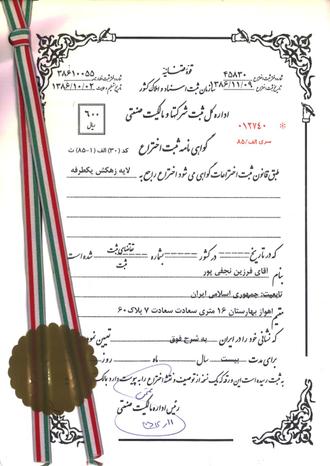 قوه قضائیه
سازمان ثبت اسناد و املاک کشور
۴۵۸۳۰
۱۳۸۶/۱۱/۰۹
۳۸۶۱۰۰۵۵
۱۳۸۶/۱۰/۰۲
اداره کل ثبت شرکتها و مالکیت صنعتی
۶۰۰
ریال
۰۱۲۷۴۰ *
سری الف/۸۵
گواهی نامه ثبت اختراع
کد (۳۰) الف (۱-۸۵) ث
طبق قانون ثبت اختراعات گواهی می شود اختراع راجع به لایه زهکش یکطرفه
که در تاریخ ------ در کشور ------ بشماره ------ تقاضای ثبت شده است
ثبت
بنام آقای فرزین نجفی پور
تابعیت: جمهوری اسلامی ایران
مقیم اهواز بهارستان ۱۶ متری سعادت سعادت ۷ پلاک ۶۰
که نشانی خود را در ایران به شرح فوق تعیین نمو
برای مدت بیست سال ماه روز
به ثبت رسیده است این ورقه که یک نسخه از توصیف و نقشه اختراع را به پیوست دارد بمالک
رئیس اداره مالکیت صنعتی